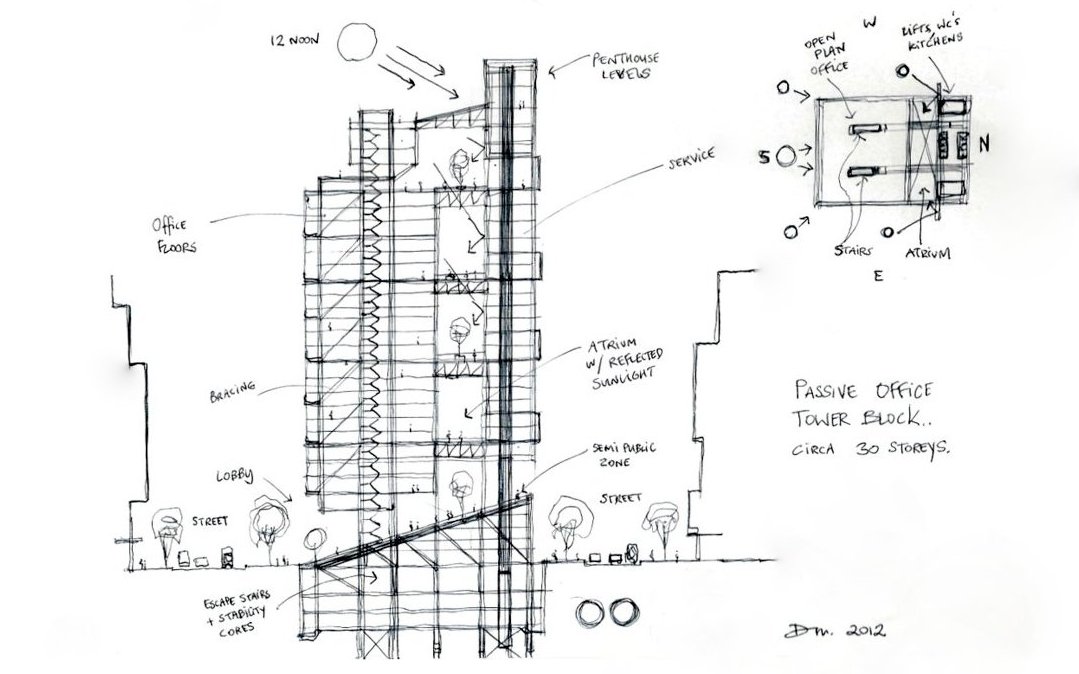 12 NOON
PENTHOUSE
LEVELS
W
OPEN
PLAN
OFFICE
LIFTS, WC'S
KITCHENS
S
N
STAIRS
ATRIUM
E
SERVICE
OFFICE
FLOORS
ATRIUM
W/ REFLECTED
SUNLIGHT
BRACING
PASSIVE OFFICE
TOWER BLOCK..
CIRCA 30 STOREYS.
LOBBY
SEMI PUBLIC
ZONE
STREET
STREET
ESCAPE STAIRS
+ STABILITY
CORES
Dm. 2012